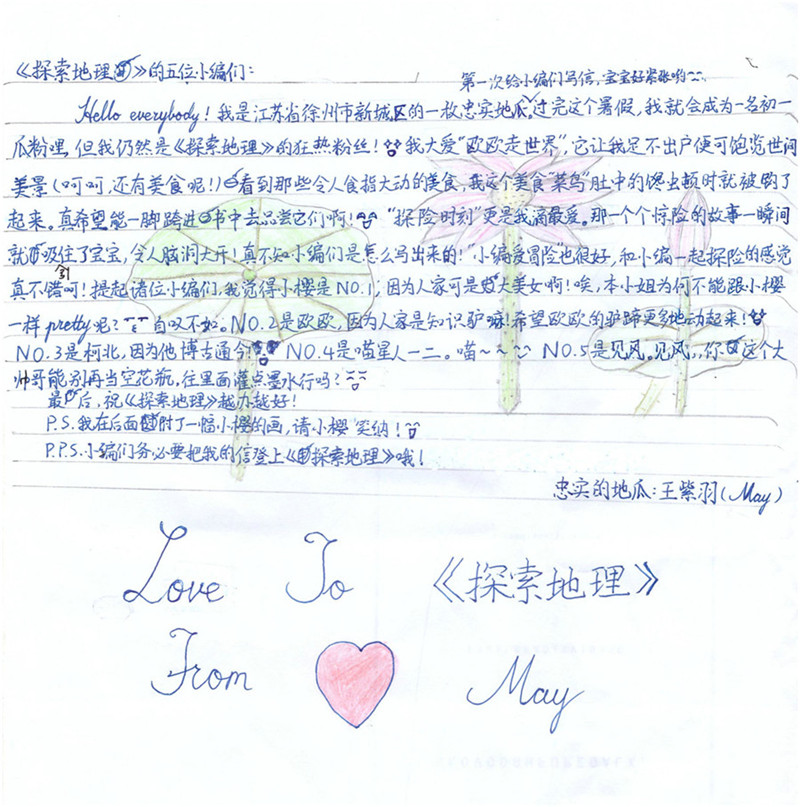 《探索地理》的五位小编们：
第一次给小编们写信，宝宝好紧张哟~~
Hello everybody！我是江苏省徐州市新城区的一枚忠实地瓜。过完这个暑假，我就会成为一名初一
瓜粉哩，但我仍然是《探索地理》的狂热粉丝！我大爱“欧欧走世界”，它让我足不出户便可饱览世间
美景（呵呵，还有美食呢！）看到那些令人食指大动的美食，我这个美食“菜鸟”肚中的馋虫顿时就被钩了
起来。真希望能一脚跨进书中去品尝它们啊！“探险时刻”更是我滴最爱。那一个个惊险的故事一瞬间
就吸住了宝宝，令人脑洞大开！真不知小编们是怎么写出来的！“小编爱冒险”也很好，和小编一起探险的感觉
真不错呵！提起诸位小编们，我觉得小樱是NO.1，因为人家可是大美女啊！唉，本小姐为何不能跟小樱
一样pretty呢？自叹不如。NO.2是欧欧，因为人家是知识驴嘛！希望欧欧的驴蹄更多地动起来！
NO.3是柯北，因为他博古通今！NO.4是喵星人一二。喵~~~ NO.5是见风，见风，你这个大
帅哥能别再当空花瓶，往里面灌点墨水行吗？
最后，祝《探索地理》越办越好！
P.S.我在后面附了一幅小樱的画，请小樱笑纳！
P.P.S.小编们务必要把我的信登上《探索地理》哦！
忠实的地瓜：王紫羽（May）
Love To 《探索地理》
From May